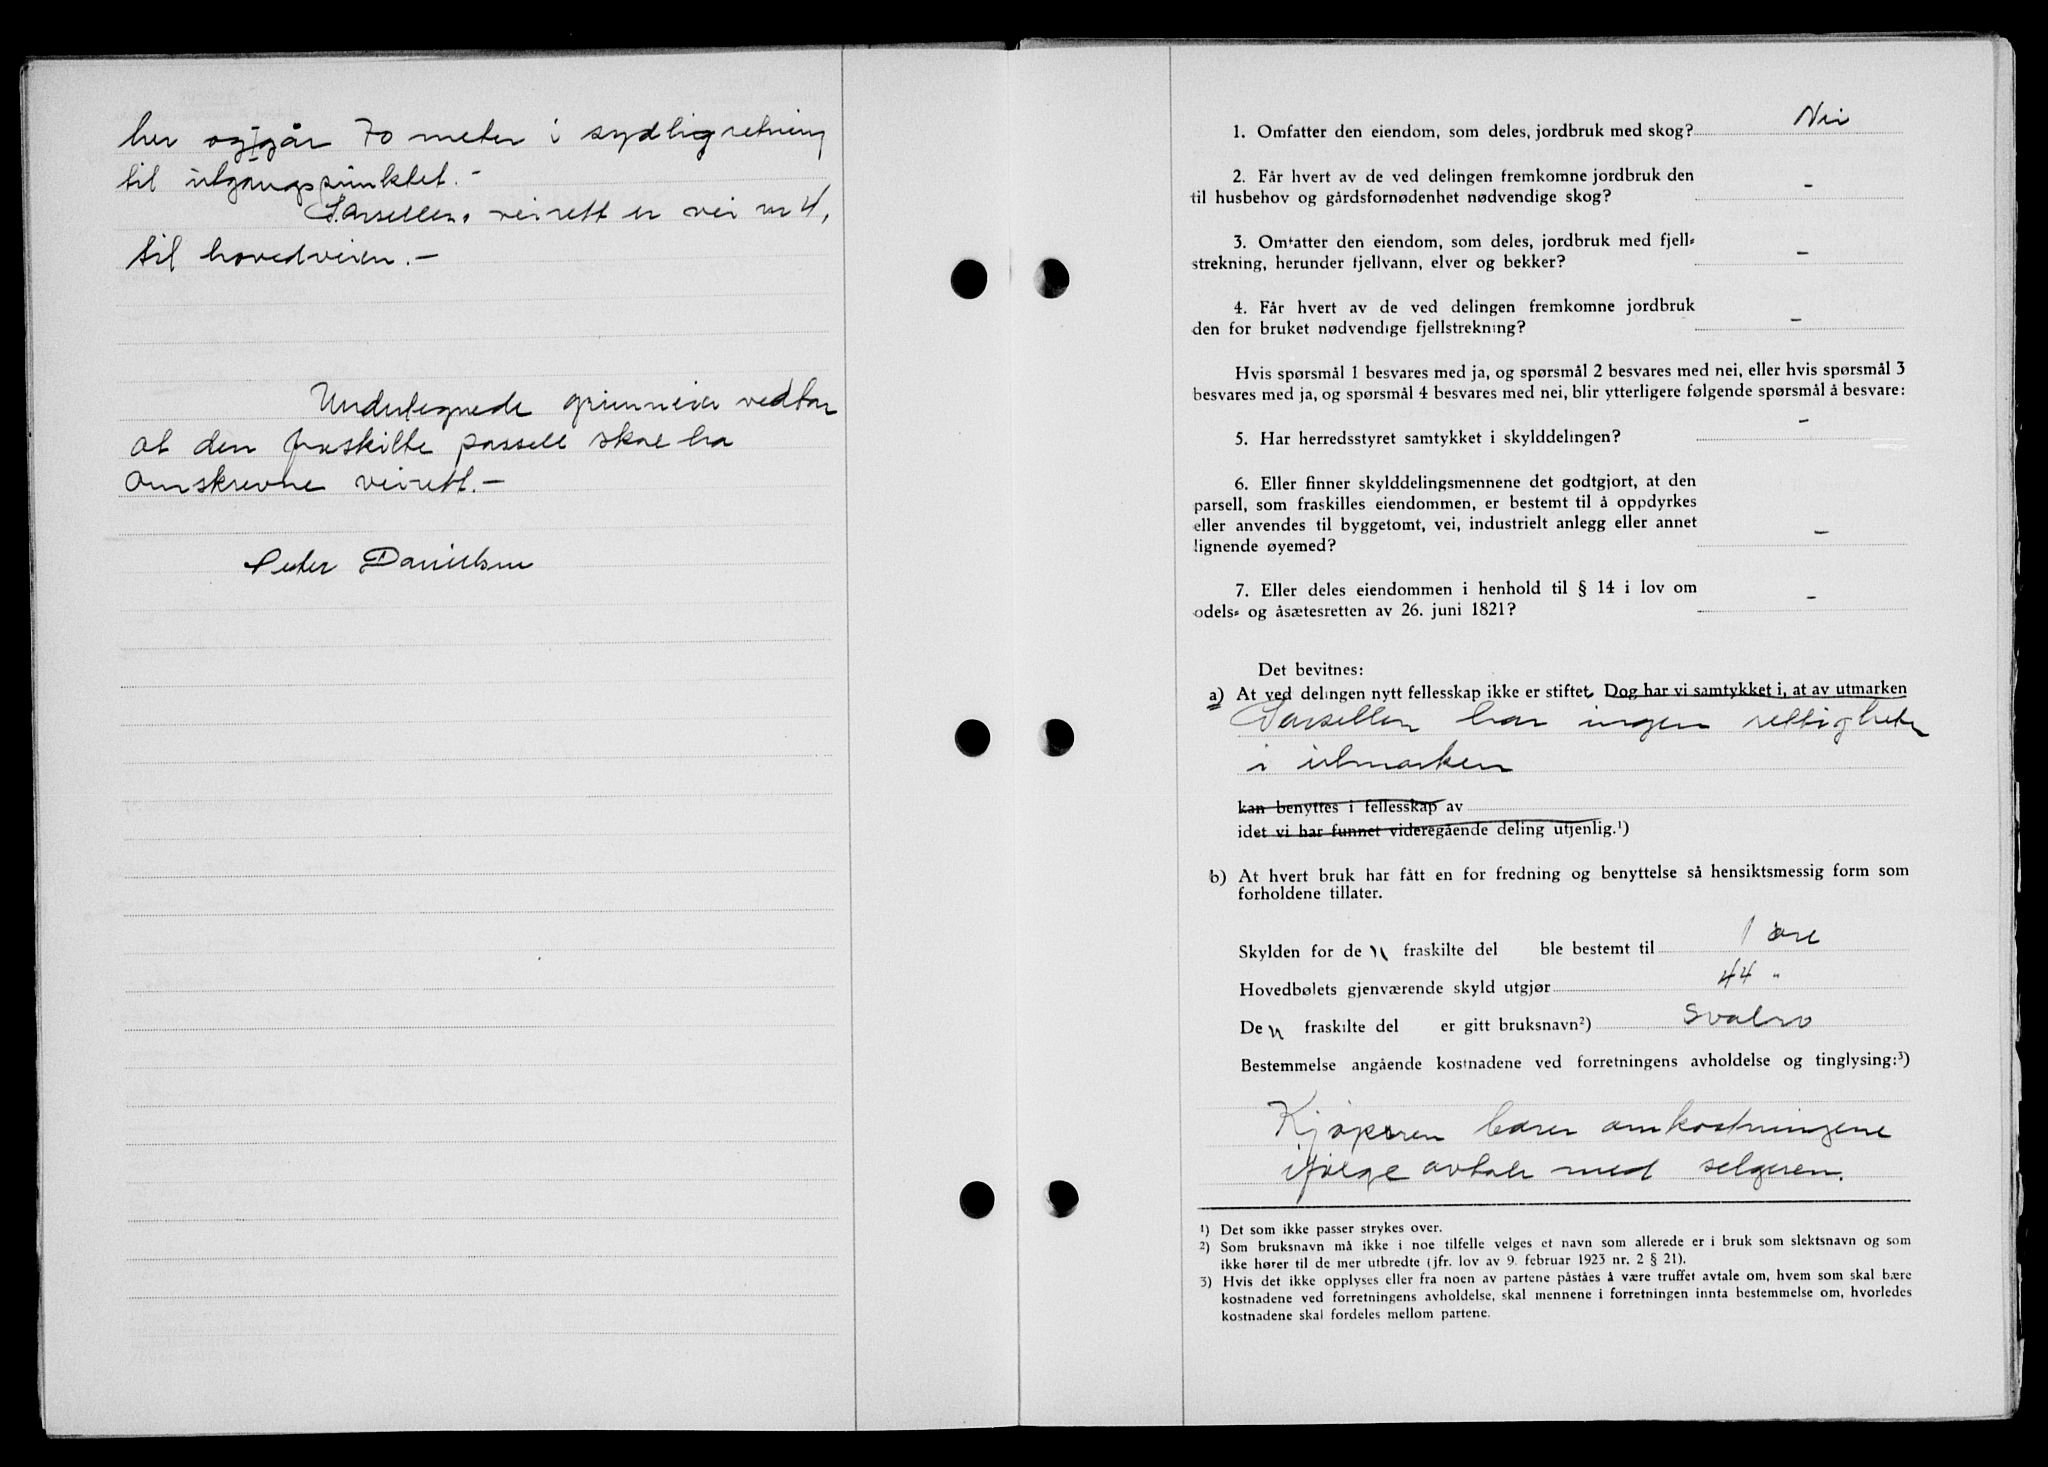 her og går 70 meter i sydlig retning
til utgangspunktet. -
Parsellens veirett er vei nr 4,
til hovedveien. -
Undertegnede grunneier vedtar
at den fraskilte parsell skal ha
omskrevne veirett. -
Peder Danielsen
1. Omfatter den eiendom, som deles, jordbruk med skog? Nei
2. Får hvert av de ved delingen fremkomne jordbruk den
til husbehov og gårdsfornødenhet nødvendige skog? -
3. Omfatter den eiendom, som deles, jordbruk med fjell-
strekning, herunder fjellvann, elver og bekker? -
4. Får hvert av de ved delingen fremkomne jordbruk
den for bruket nødvendige fjellstrekning? -
Hvis spørsmål 1 besvares med ja, og spørsmål 2 besvares med nei, eller hvis spørsmål 3
besvares med ja, og spørsmål 4 besvares med nei, blir ytterligere følgende spørsmål å besvare:
5. Har herredsstyret samtykket i skylddelingen? -
6. Eller finner skylddelingsmennene det godtgjort, at den
parsell, som fraskilles eiendommen, er bestemt til å oppdyrkes
eller anvendes til byggetomt, vei, industrielt anlegg eller annet
lignende øyemed? -
7. Eller deles eiendommen i henhold til § 14 i lov om
odels- og åsætesretten av 26. juni 1821? -
Det bevitnes:
a) At ved delingen nytt fellesskap ikke er stiftet. Dog har vi samtykket i, at av utmarken
Parsellen har ingen rettigheter
i utmarken
kan benyttes i fellesskap av
idet vi har funnet videregående deling utjenlig.¹)
b) At hvert bruk har fått en for fredning og benyttelse så hensiktsmessig form som
forholdene tillater.
Skylden for den fraskilte del ble bestemt til 1 øre
Hovedbølets gjenværende skyld utgjør 44 "
Den fraskilte del er gitt bruksnavn²) Svalro
Bestemmelse angående kostnadene ved forretningens avholdelse og tinglysing:³)
Kjøperen bærer omkostningene
ifølge avtale med selgeren.
¹) Det som ikke passer strykes over.
²) Som bruksnavn må ikke i noe tilfelle velges et navn som allerede er i bruk som slektsnavn og som
ikke hører til de mer utbredte (jfr. lov av 9. februar 1923 nr. 2 § 21).
3) Hvis det ikke opplyses eller fra noen av partene påståes å være truffet avtale om, hvem som skal bære
kostnadene ved forretningens avholdelse, skal mennene i forretningen innta bestemmelse om, hvorledes
kostnadene skal fordeles mellom partene.